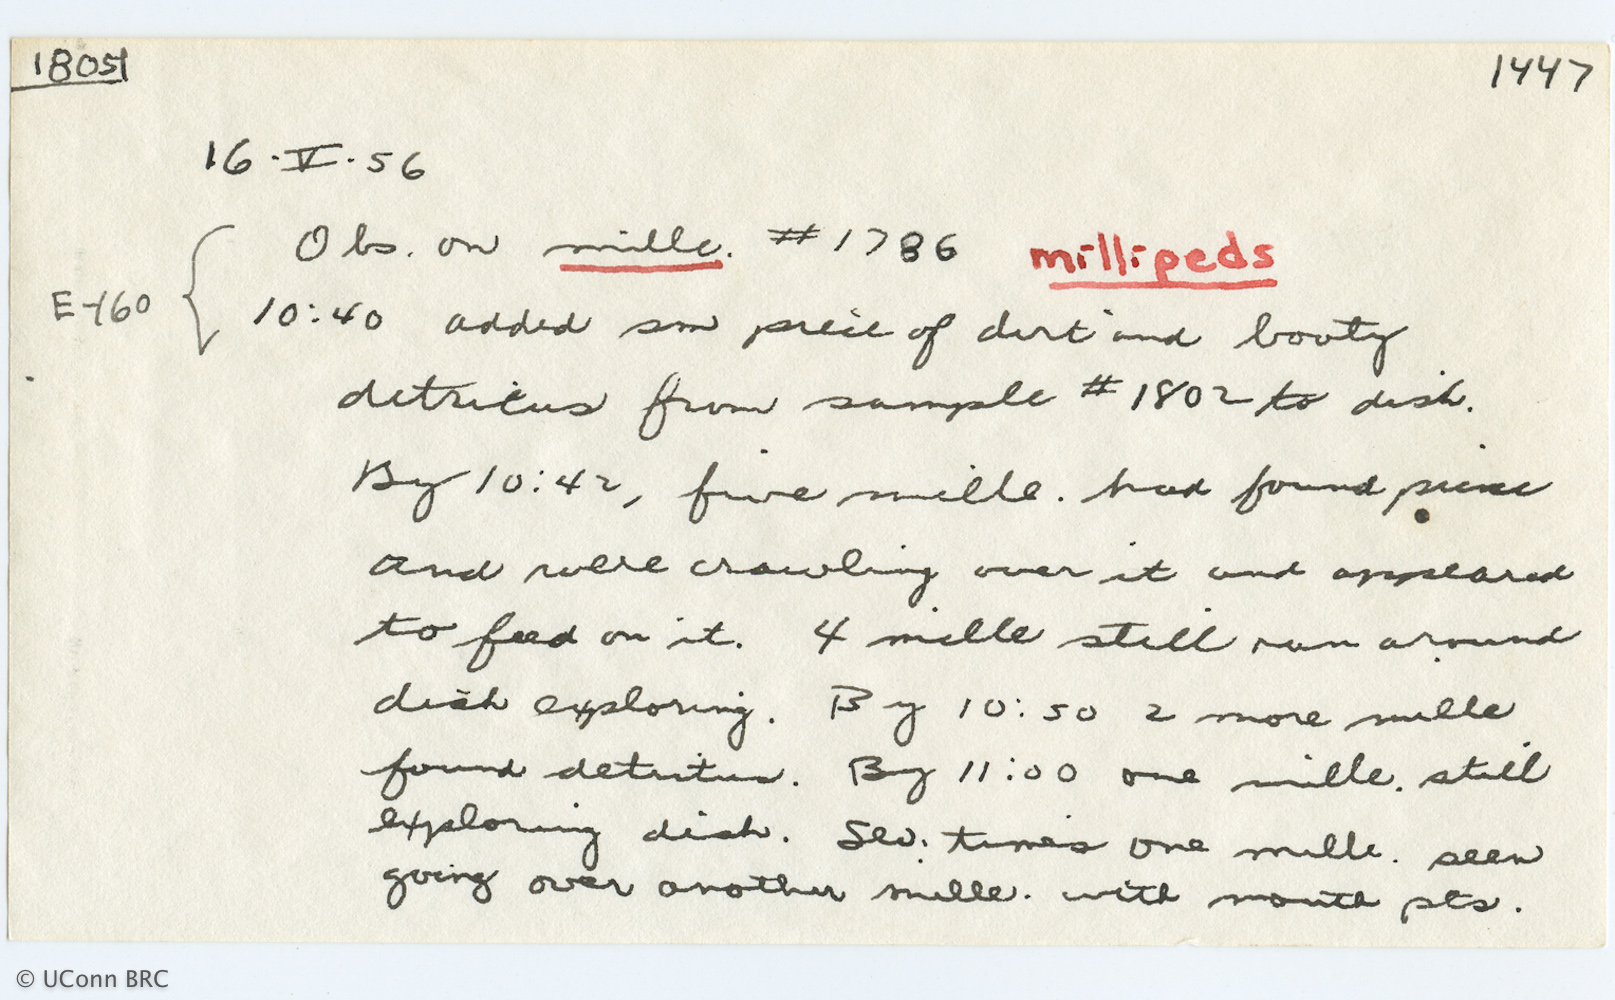 1805 1447
16·V·56
Obs. on mille. #1786 millipeds
E-160
10:40 added sm piece of dirt and booty
detritus from sample #1802 to dish.
By 10:42, five mille. had found piece
and were crawling over it and appeared
to feed on it. 4 mille still run around
dish exploring. By 10:50 2 more mille
found detritus. By 11:00 one mille. still
exploring dish. Sev. times one mille. seen
going over another mille. with mouth pts.
© UConn BRC